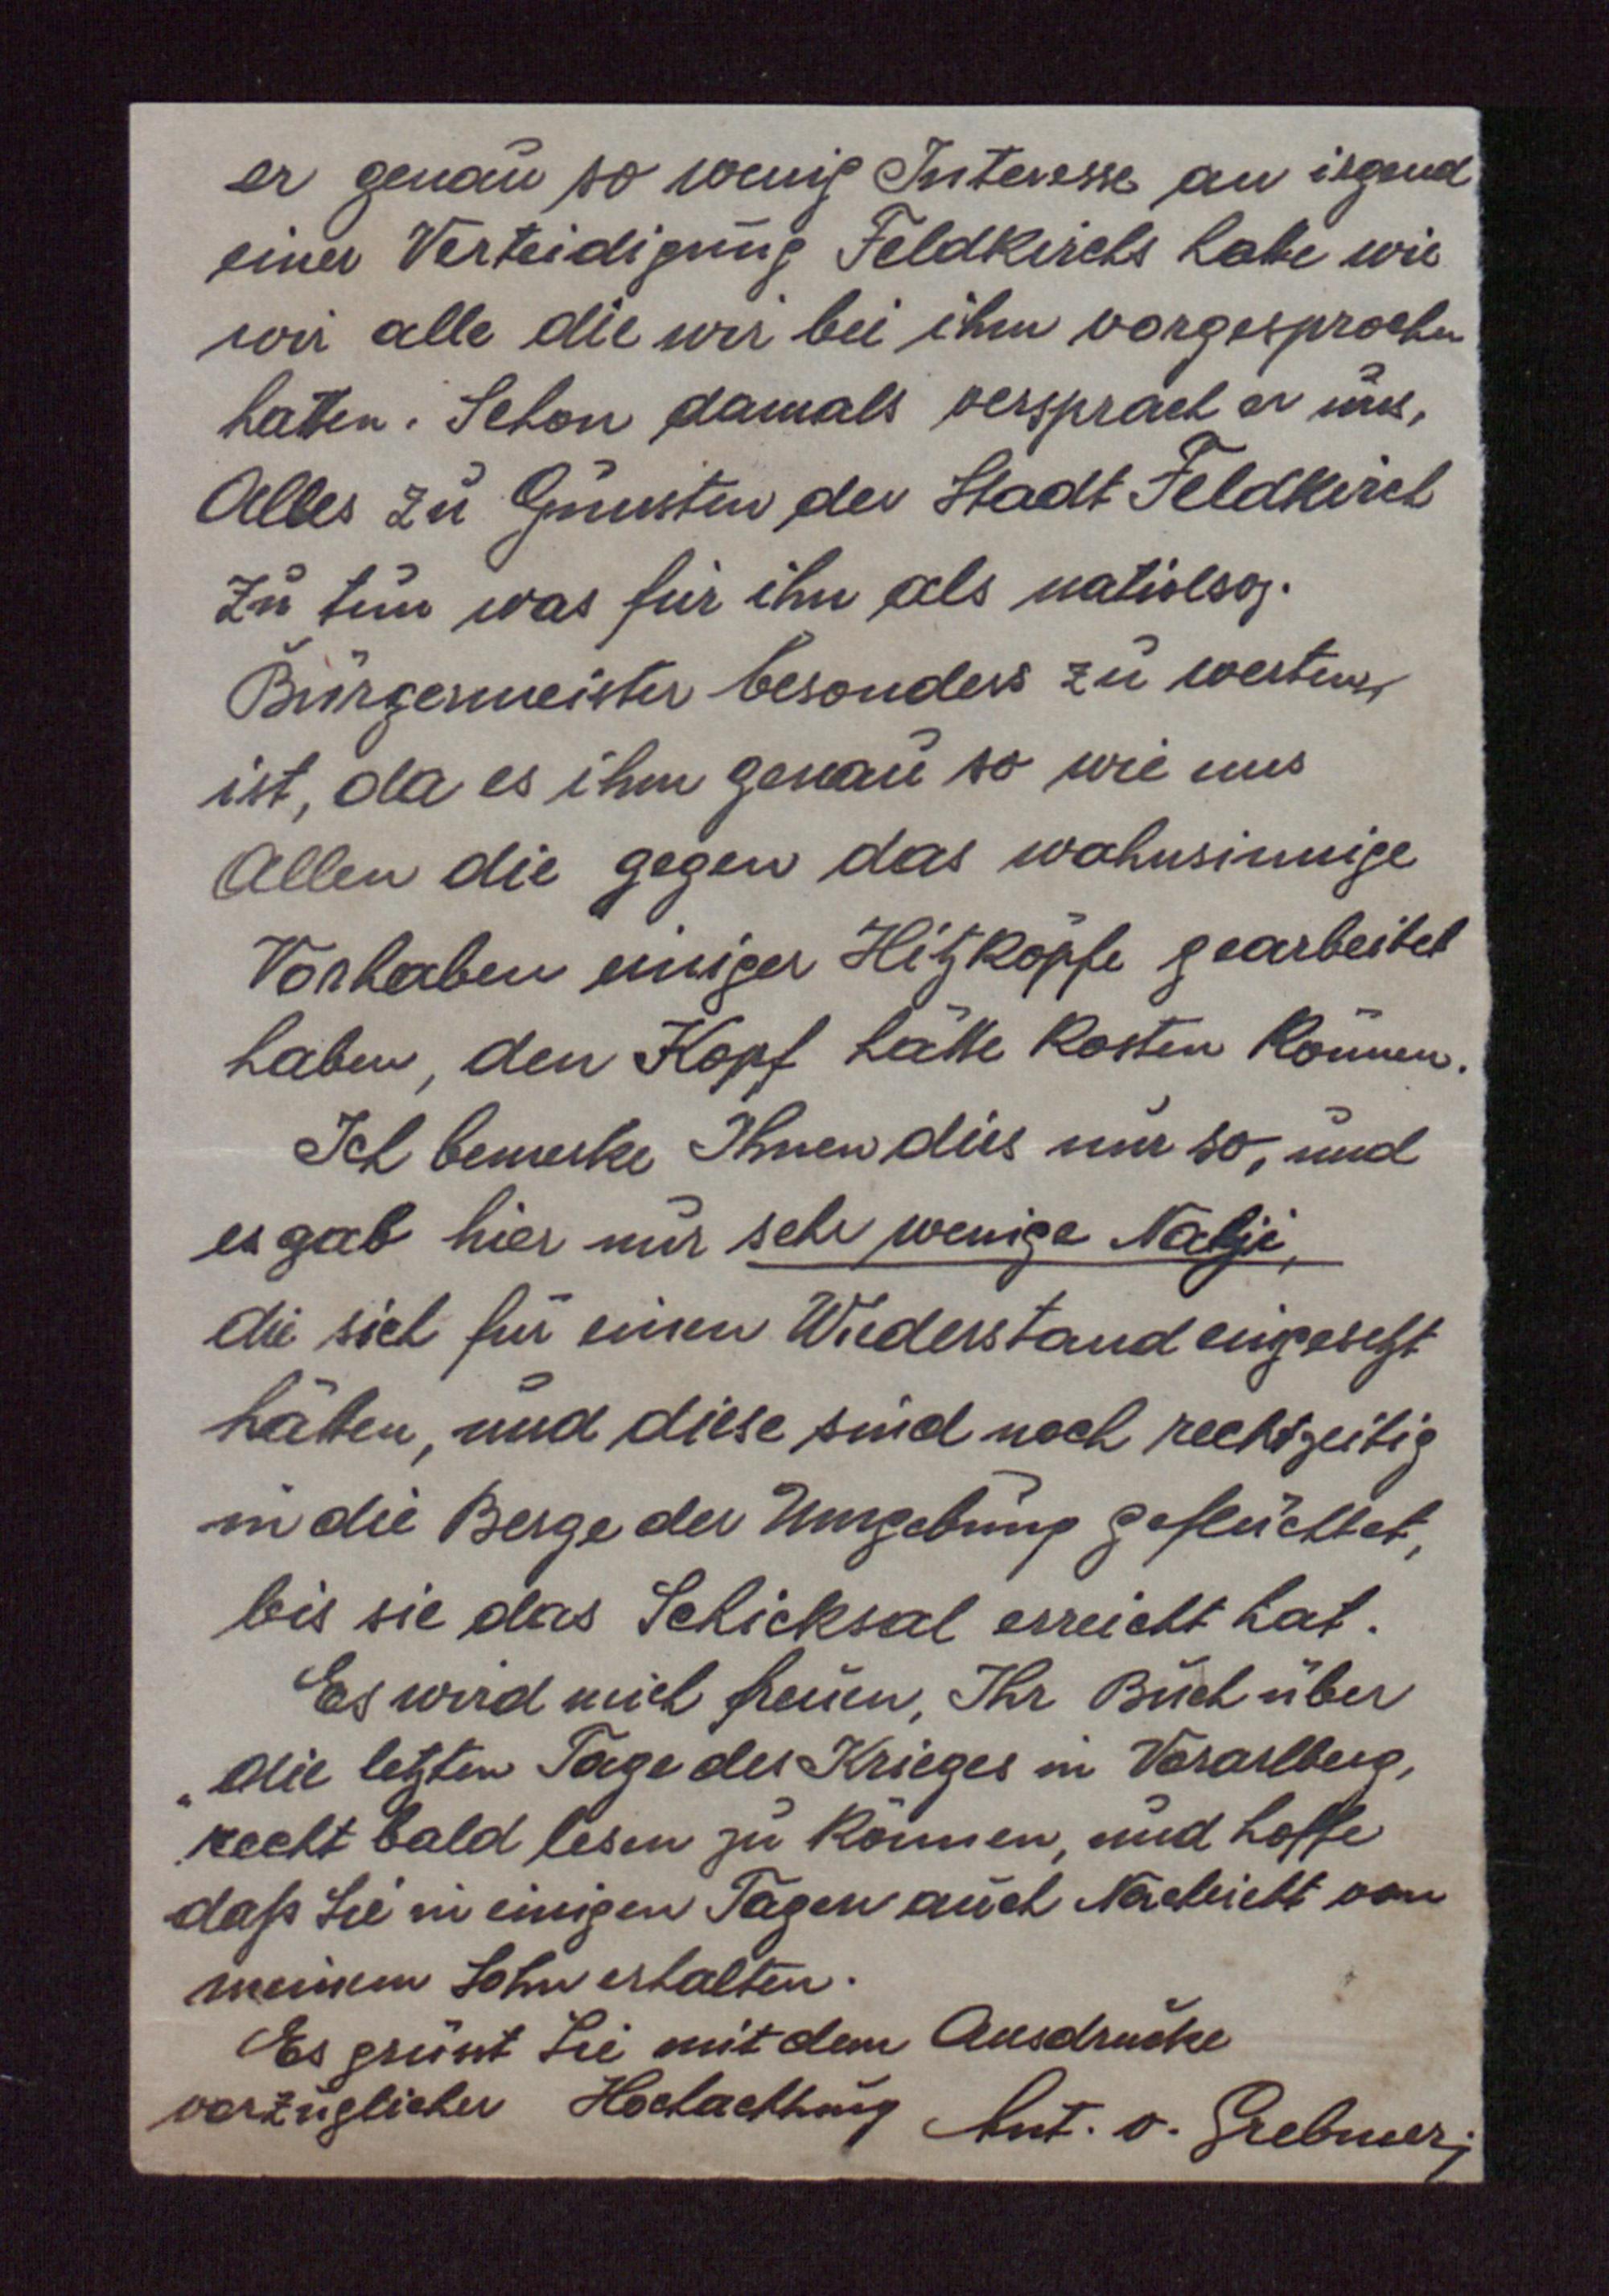 er genau so wenig Interesse an irgend
einer Verteidigung Feldkirchs habe wie
wir alle die wir bei ihm vorgesprochen
hatten. Schon damals versprach er uns,
Alles zu Gunsten der Stadt Feldkirch
zu tun was für ihn als natiolsoz.
Bürgermeister besonders zu werten
ist, da es ihm genau so wie uns
Allen die gegen das wahnsinnige
Vorhaben einiger Hitzköpfe gearbeitet
haben, den Kopf hätte kosten können.
Ich bemerke Ihnen dies nur so, und
es gab hier nur sehr wenige Nazi,
die sich für einen Wiederstand eingesetzt
hätten, und diese sind noch rechtzeitig
in die Berge der Umgebung geflüchtet,
bis sie das Schicksal erreicht hat.
Es wird mich freuen, Ihr Buch über
„die letzten Tage des Krieges in Vorarlberg,
recht bald lesen zu können, und hoffe
daß Sie in einigen Tagen auch Nachricht von
meinem Sohn erhalten.
Es grüsst Sie mit dem Ausdrucke
vorzüglicher Hochachtung Ant. v. Grebmer